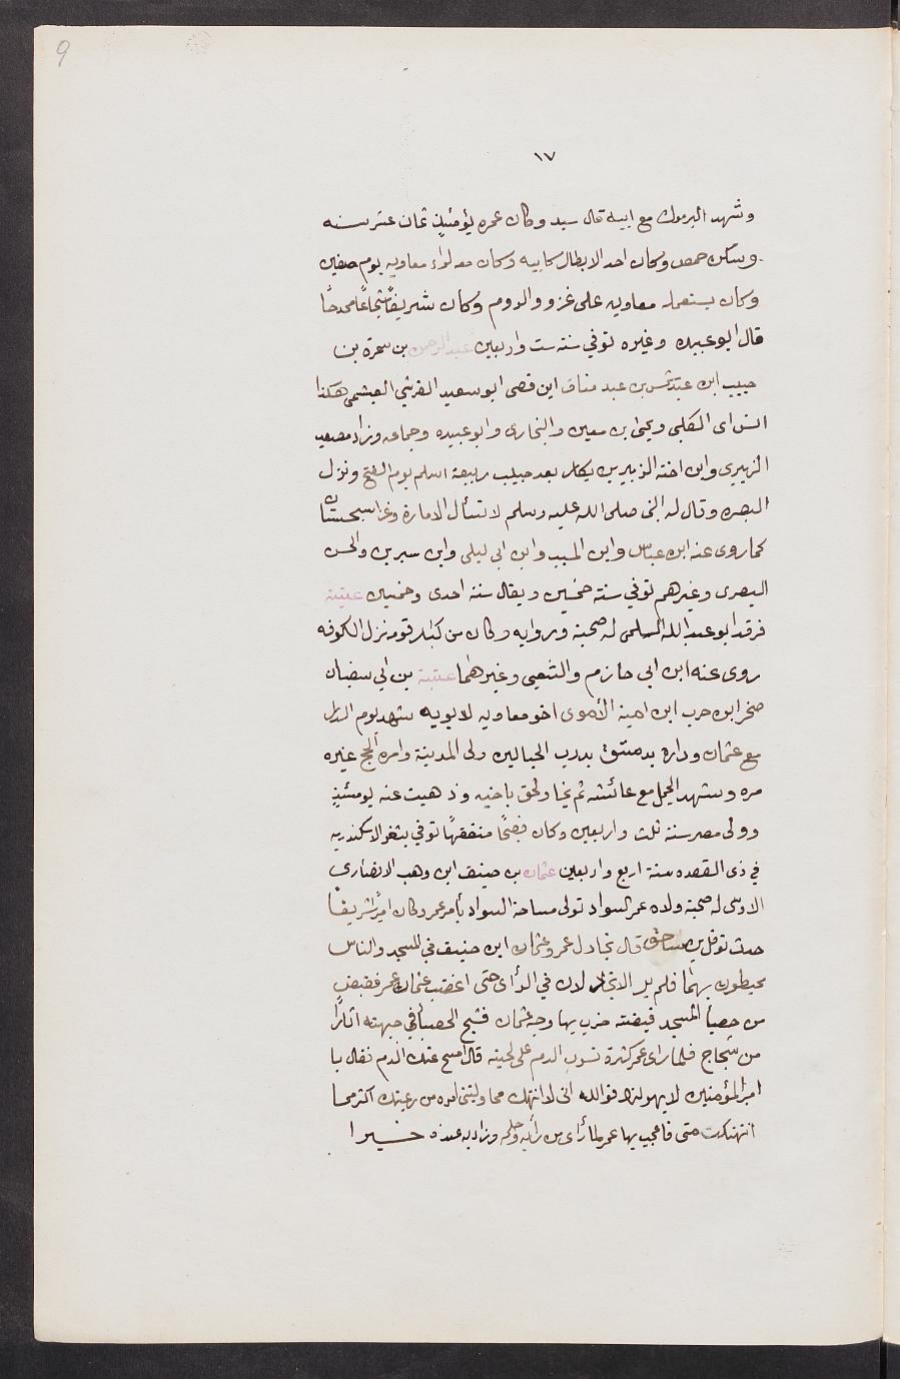 9
١٧
وشهد اليرموك مع ابيه قال سيد وكان عمره يؤمئيذٍ ثمان عشر سنه
وسكن حمص وكان احد الابطال كابيه وكان معه لواء معاويه يوم صفين
وكان يستعمله معاويه على غزو والروم وكان شريفاً شجاعاً ممدحاً
قال ابو عبيده وغيره توفي سنة ست واربعين عبد الرحمن بن سمرة بن
حبيب ابن عبد شمس بن عبد مناف ابن قصى ابو سعيد القرشي العبشمى هكذا
اى الكلبى ويحيى بن معين والبخارى وابو عبيده وجماعه وزاد مصعب
الزبيرى وابن اخته الزبير بن بكار بعد حبيب ربيعة اسلم يوم الفتح ونزل
البصره وقال له النبى صلى الله عليه وسلم لا تسأل الامارة وغزا سجستان
كما روى عنه ابن عباس وابن المسيب وابن ابى ليلى وابن سيرين والحسن
البصرى وغيرهم توفي سنة خمسين ويقال سنة احدى وخمسين عتبة
فرقد ابو عبد الله السلمى له صحبة وروايه وكان من كبار قومه نزل الكوفه
روى عنه ابن ابى حازم والشعبى وغيرهما عتبة بن ابي سفيان
صخر ابن حرب ابن امية الأموى اخو معاويه لابويه شهد يوم الدار
مع عثمان وداره بدمشق بدرب الحبالين ولى المدينة وامره الحج غيره
مره وشهد الجمل مع عائشه ثم نجا ولحق باخيه وذهبت عنه يومئيذٍ
وولى مصر سنة ثلث واربعين وكان فصحاً متفقهاً توفي بثغر الاسكندريه
في ذى القعده سنة اربع واربعين عثمان بن حنيف ابن وهب الانصارى
الاوسى له صحبة ولاه عمر السواد تولى مساحة السواد بأمر عمر وكان اميراً شريفاً
حدث نوفل بن مساحق قال تجادل عمر وعثمان ابن حنيف في المسجد والناس
محيطون بهما فلم يزالا يتجادلان في الرأى حتى اغضب عثمان عمر فقبض
من حصبأ المسجد قبضته ضرب بها وجه عثمان فشج الحصبأ في جبهته اثاراً
من شجاج فلما راى عمر كثرة تسرب الدم على لحيته قال امسح عنك الدم فقال يا
امير المؤمنين لا يهولنك فوالله انى لانتهك مما وليتنى امره من رعيتك اكثر مما
انتهكت منى فاعجب بها عمر لما رأى من رأيه وحلمه وزاد به عنده خيرا